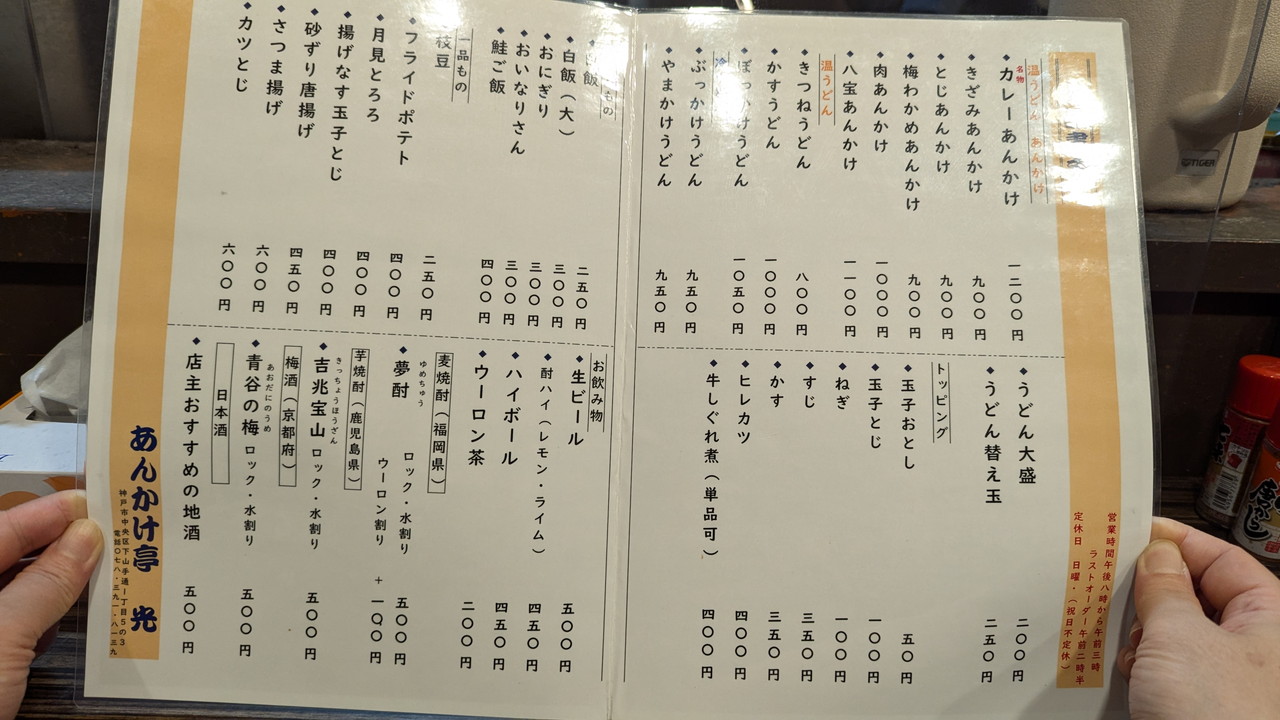 温うどん あんかけ
名物
カレーあんかけ 一二〇〇円
きざみあんかけ 九〇〇円
とじあんかけ 九〇〇円
梅わかめあんかけ 九〇〇円
肉あんかけ 一〇〇〇円
八宝あんかけ 一一〇〇円
温うどん
きつねうどん 八〇〇円
かすうどん 一〇〇〇円
ぼっかけうどん 一〇五〇円
冷
ぶっかけうどん 九五〇円
やまかけうどん 九五〇円
うどん大盛 二〇〇円
うどん替え玉 二五〇円
トッピング
玉子おとし 五〇円
玉子とじ 一〇〇円
ねぎ 一〇〇円
すじ 三五〇円
かす 三五〇円
ヒレカツ 四〇〇円
牛しぐれ煮（単品可） 四〇〇円
営業時間午後八時から午前三時
ラストオーダー午前二時半
定休日 日曜・（祝日不定休）
もの
白飯 二五〇円
白飯（大） 三〇〇円
おにぎり 三〇〇円
おいなりさん 三〇〇円
鮭ご飯 四〇〇円
一品もの
枝豆 二五〇円
フライドポテト 四〇〇円
月見とろろ 四〇〇円
揚げなす玉子とじ 四〇〇円
砂ずり唐揚げ 四五〇円
さつま揚げ 六〇〇円
カツとじ 六〇〇円
お飲み物
生ビール 五〇〇円
酎ハイ（レモン・ライム） 四五〇円
ハイボール 四五〇円
ウーロン茶 二〇〇円
麦焼酎（福岡県）
ゆめちゅう
夢酎 ロック・水割り 五〇〇円
ウーロン割り +一〇〇円
芋焼酎（鹿児島県）
きっちょうほうざん
吉兆宝山 ロック・水割り 五〇〇円
梅酒（京都府）
あおだにのうめ
青谷の梅 ロック・水割り 五〇〇円
日本酒
店主おすすめの地酒 五〇〇円
あんかけ亭 光
神戸市中央区下山手通一丁目5の3
電話〇七八・三九一・八一三九
TIGER